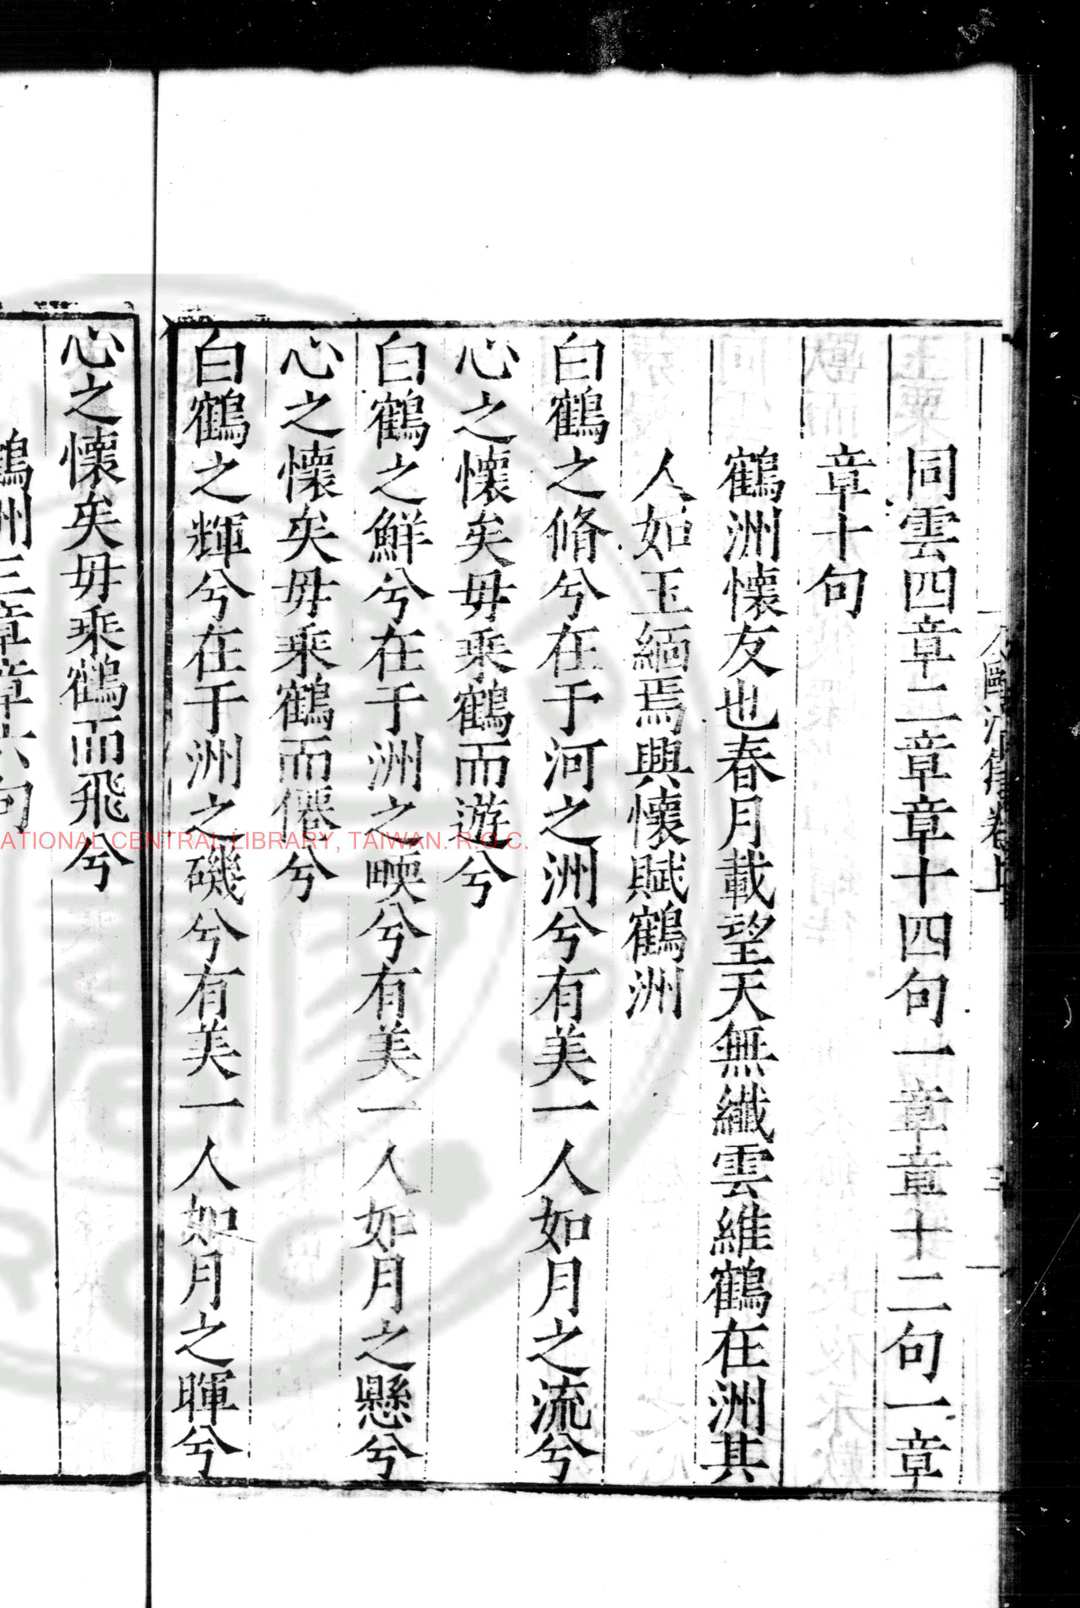 同雲四章二章章十四句一章章十二句一章
章十句
鶴洲懷友也春月載望天無纖雲維鶴在洲其
人如玉緬焉興懷賦鶴洲
白鶴之脩兮在于河之洲兮有美一人如月之流兮
心之懷矣毋乘鶴而遊兮
白鶴之鮮兮在于洲之㬉兮有美一人如月之懸兮
心之懷矣毋乘鶴而僊兮
白鶴之輝兮在于洲之磯兮有美一人如月之暉兮
心之懷矣毋乘鶴而飛兮
鶴洲三章章六句
NATIONAL CENTRAL LIBRARY, TAIWAN. R.O.C.